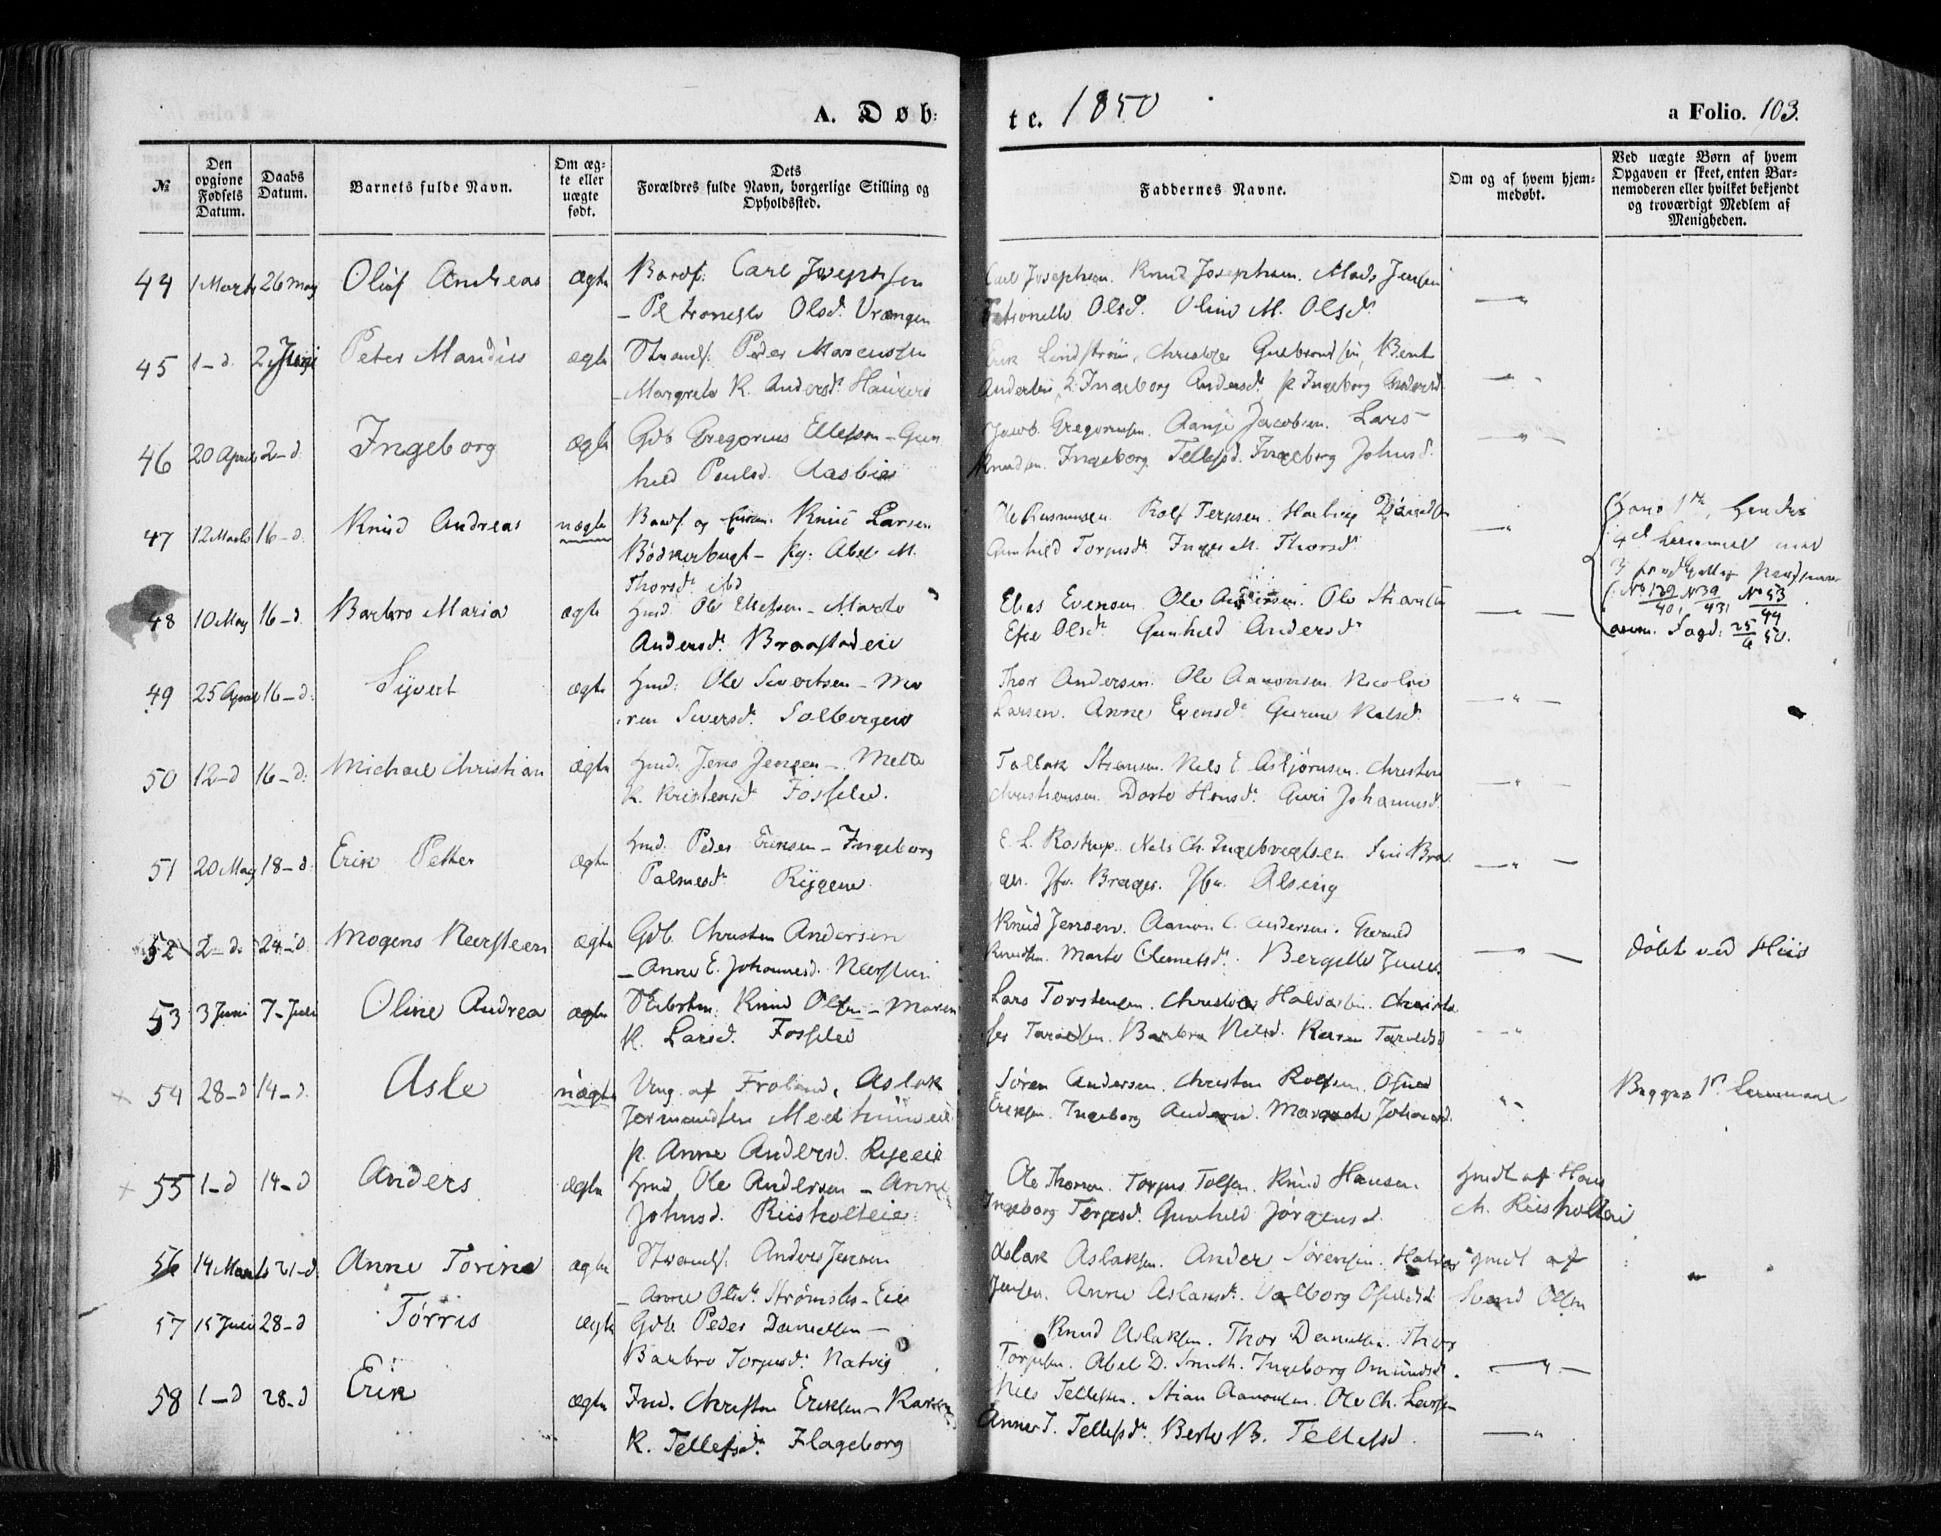 A. Døb:
te. 1850
a Folio. 103.
№
Den opgivne Fødsels Datum.
Daabs Datum.
Barnets fulde Navn.
Om ægte eller uægte født.
Dets Forældres fulde Navn, borgerlige Stilling og Opholdssted.
Faddernes Navne.
Om og af hvem hjemmedøbt.
Ved uægte Børn af hvem Opgaven er skeet, enten Barnemoderen eller hvilket bekjendt og troværdigt Medlem af Menigheden.
44 1 Marts 26 May Oluf Andreas ægte Carl Josephsen
Petronelle Olsd. Vrængen
Carl Josephsen. Knud Josephsen. Mads Jensen
Petronelle Olsd. Oline M. Olsd.
45 1-d. 2 Juni Peter Mandius ægte Peder Marcussen
Margrete K. Andersd.
Erik Lindstrøm, Christopher Gulbrandsen, Bent
Andersen, Ingeborg Andersd. p. Ingeborg Andersd.
46 20 April 2-d. Ingeborg ægte Gdb Gregorius Ellefsen - Gun
hild Poulsd. Aasbie
Jacob Gregoriussen. Aanje Jacobsen. Lars
Knudsen. Ingeborg Tellefsd. Ingeborg Johnsd.
47 12 Marts 16-d. Knud Andreas uægte og Knud Larsen
Bødkerbugt - pg: Abel M.
Thorsd. ibd
Ole Rasmussen. Rolf Terjesen.
Gunhild Torjusd. Inger M. Thorsd.
48 10 May 16-d. Barbro Maria ægte Hmd. Ole Ellefsen - Marte
Andersd. Braastadeie
Elias Evensen. Ole Andersen. Ole
Efie Olsd. Gunhild Andersd.
№ 139/40, № 39/43, № 53/44
25/6 50.
49 25 April 16-d. Syvert ægte Hmd: Ole Sivertsen - Ma
ren Siversd. Solbergeie
Thor Andersen. Ole Aanonsen Nicolai
Larsen. Anne Evensd. Gurine Nilsd.
50 12-d 16-d. Michael Christian ægte Hmd: Jens Jensen - Mette
K. Kristensd. Fosselie.
Tallak Stiansen. Nils E Asbjørnsen. Christen
Christensen. Dorte Hansd. Guri Johannesd.
51 20 May 18-d. Erik Petter ægte Hmd. Peder Eriksen - Ingeborg
Palmesd. Rygene.
E. L. Rostrup. Nels Ch. Ingebregtsen
ger. Jfr. Brager. Jfr. Alsing
52 2-d. 24-d. Mogens Neersteen ægte Gdb. Christen Andersen
- Anne E. Johannesd. Neersteen
Knud Jensen. Aanon C. Andersen.
Knudsen. Marte Clemetsd. Bergitte
døbt ved Hiis
53 3 Juni 7-Juli Oline Andrea ægte Knud Olsen - Maren
K. Larsd. Fosselie
Lars Torstensen. Christen Halvorsen. Christo
fer Taraldsen. Barbra Nilsd. Karen Taraldsd
54 28-d 14-d. Asle uægte Ung. af Froland, Aslak
Jermundsen
p. Anne Andersd. Rygeeie
Søren Andersen. Christen Rolfsen. Osmund
Eriksen. Ingeborg Andersd. Margrete Johannesd.
Begges 1ste Leiermaal
55 1-d 14-d Anders ægte Hmd Ole Andersen - Anne
Johnsd. Riisholteie
Ole Thorsen. Torjus Tolfsen. Knud Hansen.
Ingeborg Terjesd. Gunhild Jørgensd.
Hmdt af Hans
Ch. Riisholteie
56 14 Marts 21-d. Anne Torine ægte Anders Jensen
- Anne Olsd. Strømsbo-Eie
Aslak Aslaksen. Anders Sørensen. Halvor
Jensen. Anne Aslaksd. Valborg
hmdt af
Svend Olsen
57 15 Juli 28-d Tørris ægte Gdb. Peder Danielsen -
Barbro Torjusd. Natvig
Knud Aslaksen. Thor Danielsen. Thor
Torjusen. Abel D. Smith. Ingeborg Omundsd.
58 1-d 28-d Erik ægte Ind. Christen Eriksen - Karen
K. Tellefsd. Flageborg
Nils Tellefsen. Stian Aanonsen. Ole Ch. Larsen
Anne T. Tellefsd. Berte B. Tellefsd.